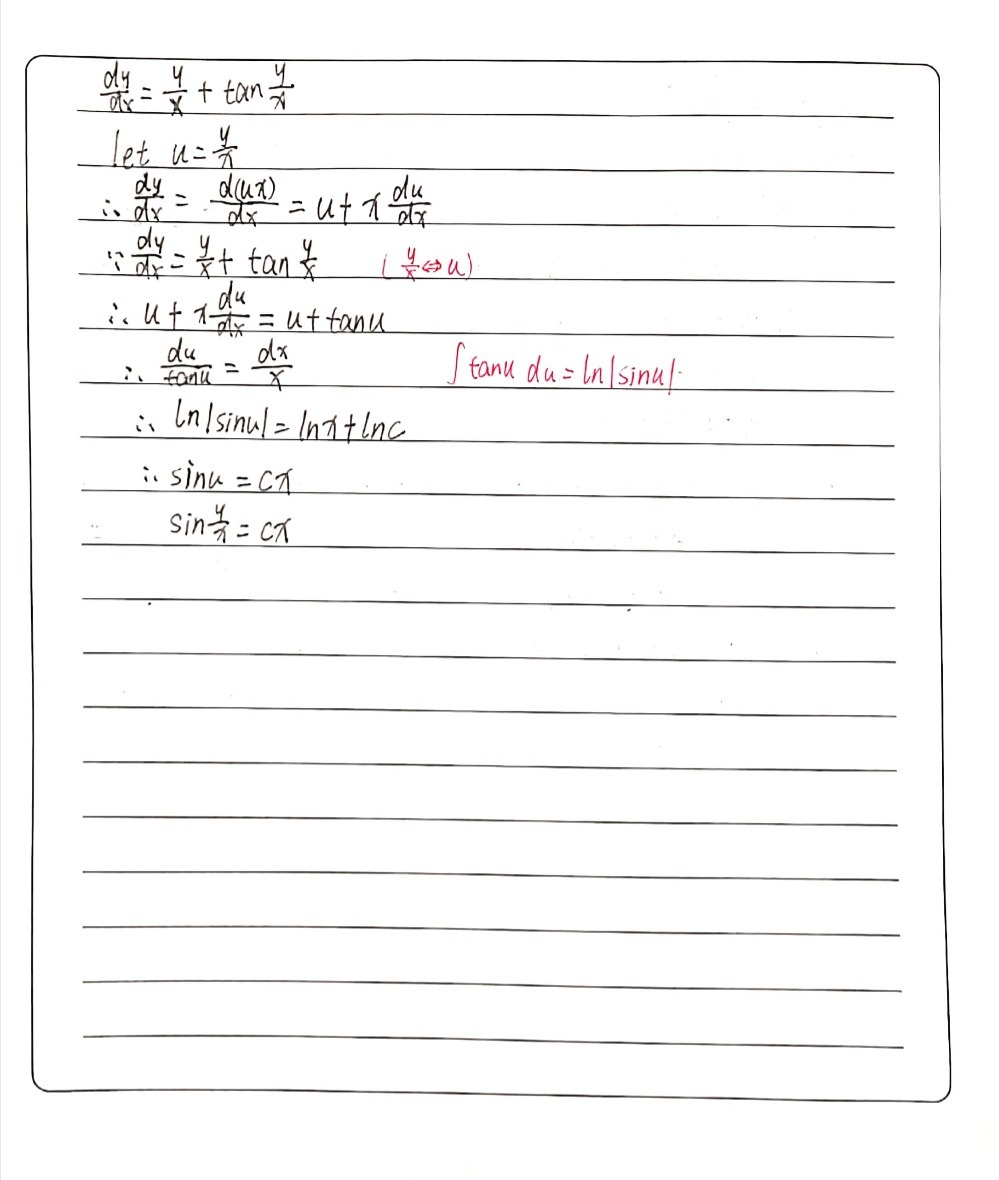 dy/dx = y/x + tan y/x
let u = y/x
∴ dy/dx = d(ux)/dx = u + x du/dx
∵ dy/dx = y/x + tan y/x ( y/x ⇔ u)
∴ u + x du/dx = u + tanu
∴ du/tanu = dx/x ∫ tanu du = ln|sinu|.
∴ ln|sinu| = lnx + lnc
∴ sinu = cx
sin y/x = cx